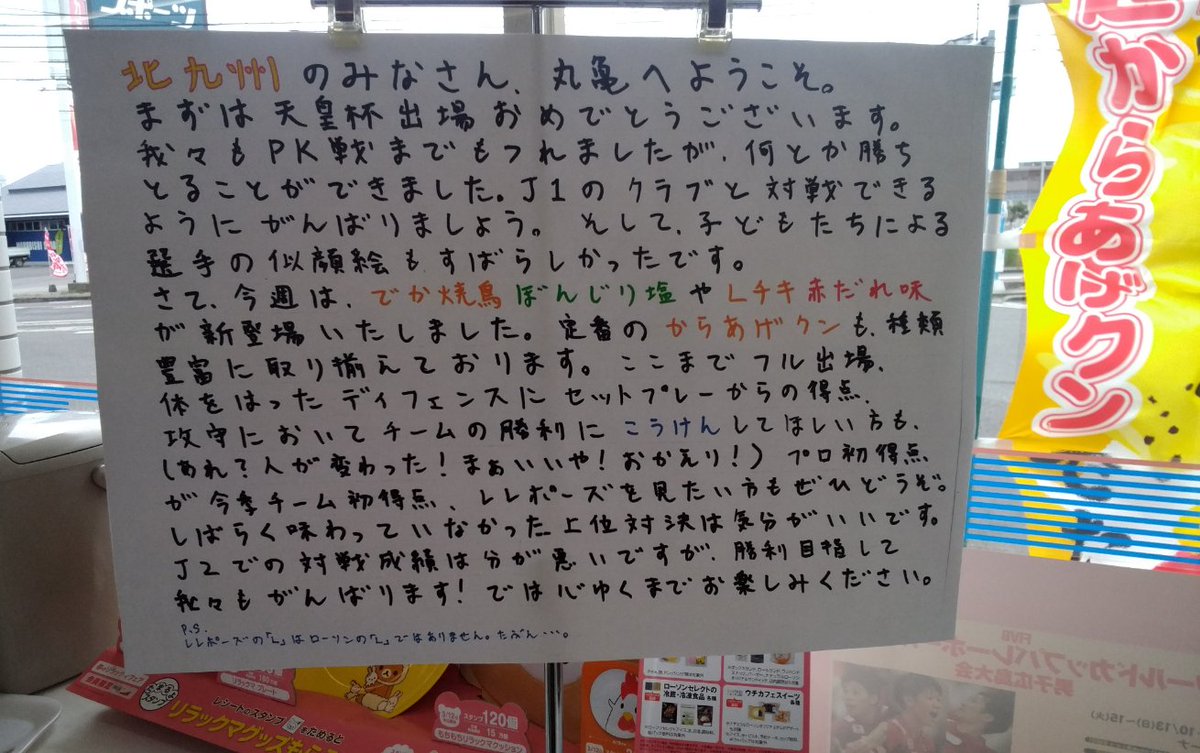 スポーツ
北九州のみなさん、丸亀へようこそ。
まずは天皇杯出場おめでとうございます。
我々もPK戦までもつれましたが、何とか勝ち
とることができました。J1のクラブと対戦できる
ようにがんばりましょう。そして、子どもたちによる
選手の似顔絵もすばらしかったです。
さて、今週は、でか焼鳥ぼんじり塩やLチキ赤だれ味
が新登場いたしました。定番のからあげクンも、種類
豊富に取り揃えております。ここまでフル出場、
体をはったディフェンスにセットプレーからの得点、
攻守においてチームの勝利にこうけんしてほしい方も、
(あれ?人が変わった!まぁいいや!おかえり!)プロ初得点
が今季チーム初得点、レレポーズを見たい方もぜひどうぞ。
しばらく味わっていなかった上位対決は気分がいいです。
J2での対戦成績は分が悪いですが、勝利目指して
我々もがんばります!では心ゆくまでお楽しみください。
P.S.
レレポーズの「L」はローソンの「L」ではありません。たぶん…。
からあげクン
レシートのスタンプを集めると
リラックマグッズもら
リラックマプレート
スタンプ120個
もちもちリラックマクッション
ローソンセレクトの
冷蔵・冷凍食品 各種
ウチカフェスイーツ
各種
FIVB
ールドカップバレーボ
男子広島大会
10/13(日)~15(火)